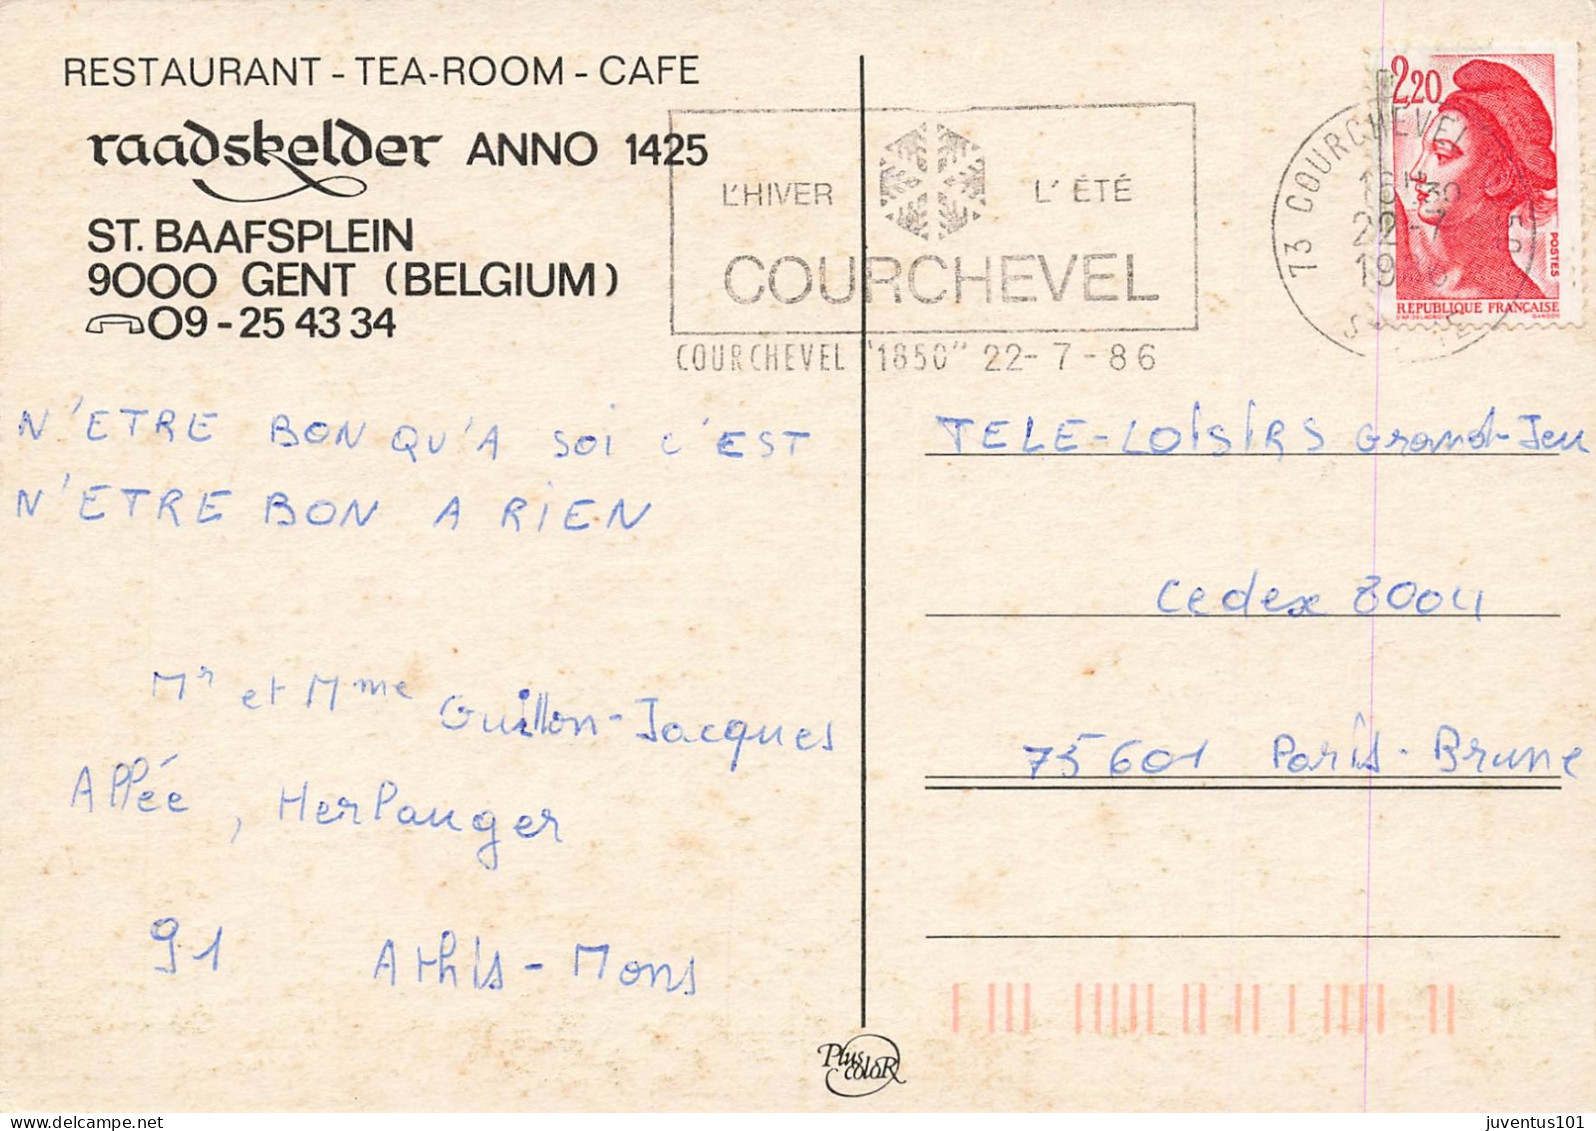 RESTAURANT - TEA-ROOM - CAFE
raadskelder ANNO 1425
ST. BAAFSPLEIN
9000 GENT (BELGIUM)
09-25 43 34
L'HIVER L'ÉTÉ
COURCHEVEL
COURCHEVEL "1850" 22-7-86
73 COURCHEVEL
16H30
22-7
2,20
POSTES
REPUBLIQUE FRANÇAISE
N'ETRE BON QU'A SOI C'EST
N'ETRE BON A RIEN
Mr et Mme Guillon-Jacques
Allée, Herlauger
91 Athis-Mons
TELE-LOISIRS Grand-Jeu
Cedex 8004
75601 Paris-Brune
Plus
coloR
juventus101